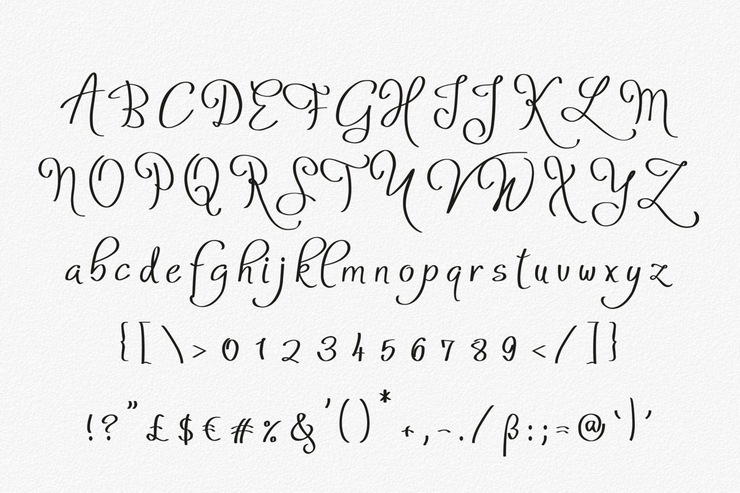 ABCDEFGHIJKLM
NOPQRSTUVWXYZ
abcdefghijklmnopqrstuvwxyz
{[\> 0 1 2 3 4 5 6 7 8 9 </]}
!?”£$€#%&’()*+,-./ß:;=@‘|’